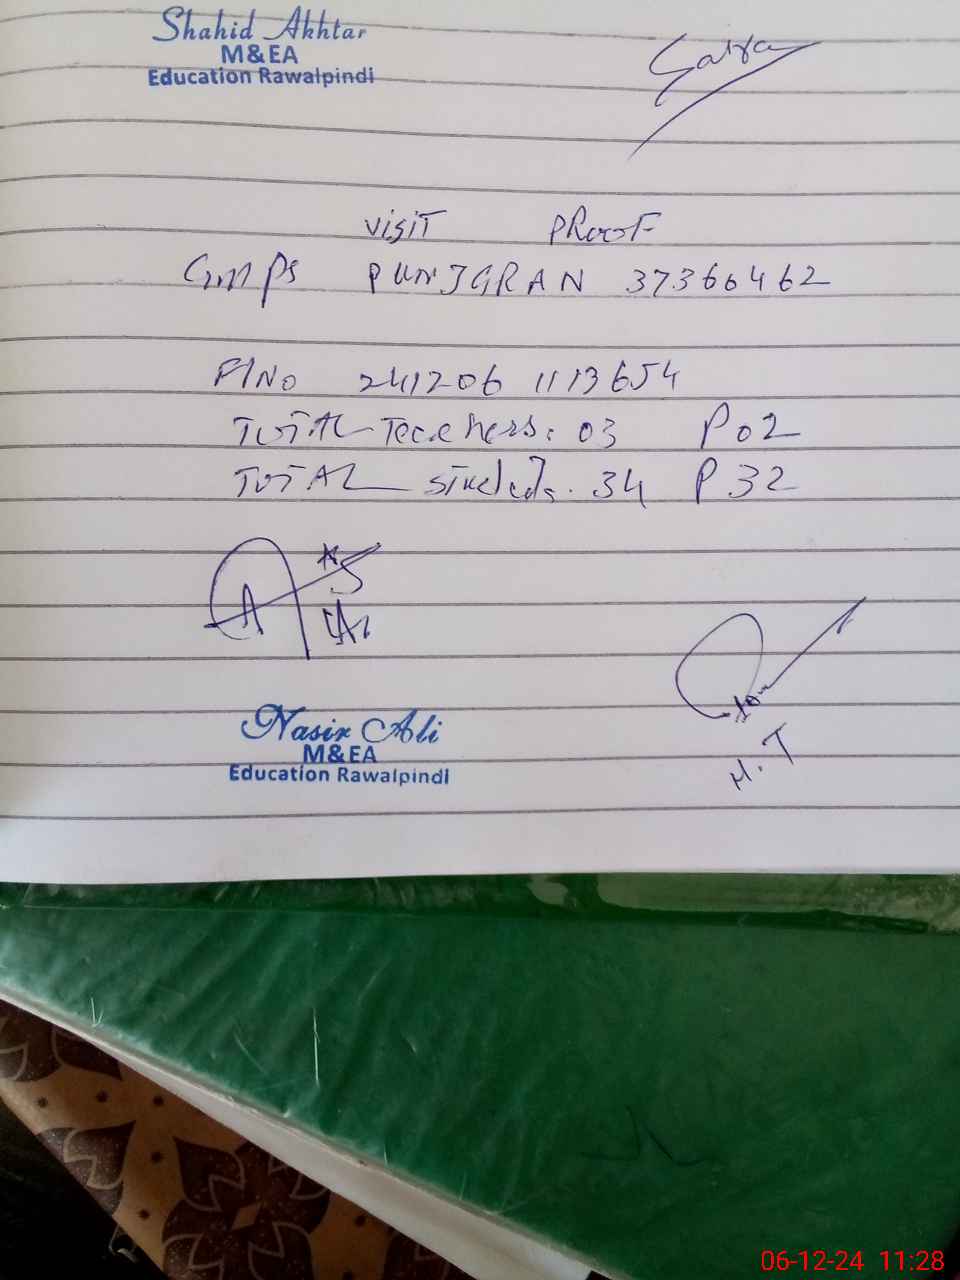 Shahid Akhtar
M&EA
Education Rawalpindi
VISIT PROOF
GMPS PUNJGRAN 37366462
P/No 241206 1113654
TOTAL Teachers: 03 P 02
TOTAL Students. 34 P 32
Nasir Ali
M&EA
Education Rawalpindi
H.T
06-12-24 11:28